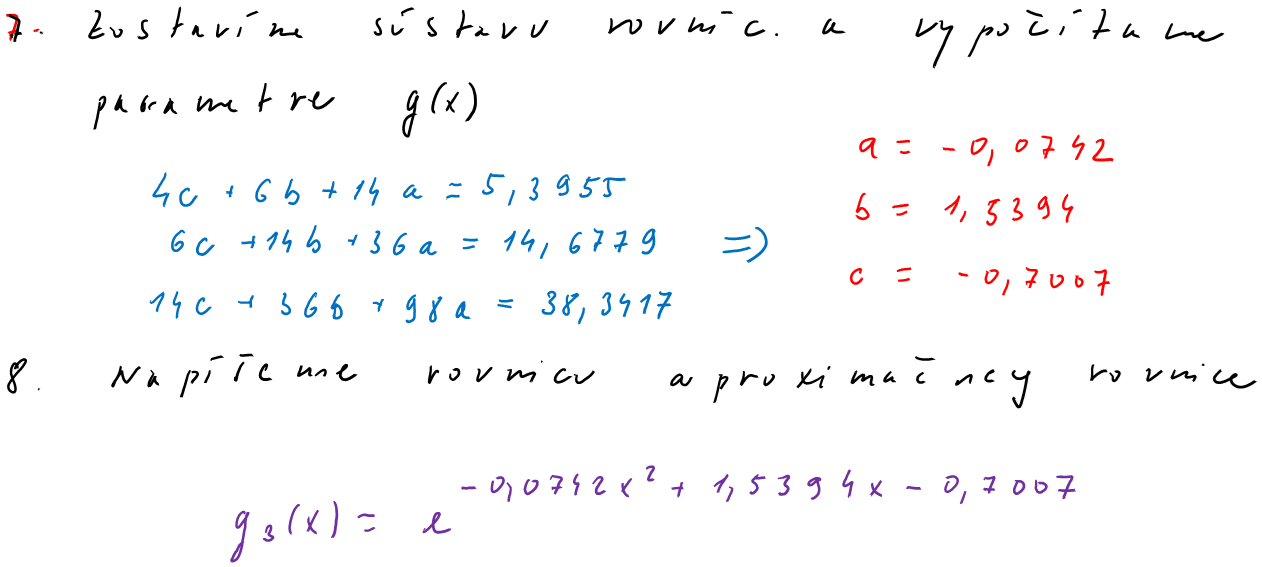 7. Zostavíme sústavu rovníc. a vypočítame
parametre g(x)
4c + 6b + 14a = 5,3955
6c + 14b + 36a = 14,6779 =>
14c + 36b + 98a = 38,3417
a = -0,0742
b = 1,5394
c = -0,7007
8. Napíšeme rovnicu aproximačney rovnice
g₃(x) = e^(-0,0742x² + 1,5394x - 0,7007)